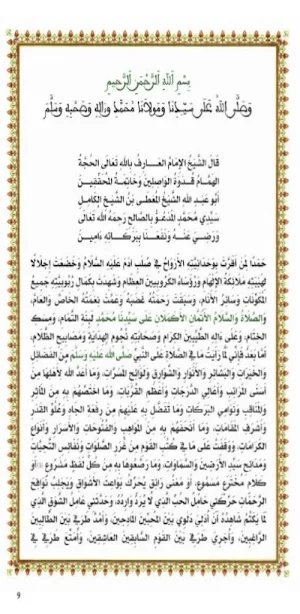 بِسْمِ اللَّهِ الرَّحْمَنِ الرَّحِيمِ
وَصَلَّى اللَّهُ عَلَى سَيِّدِنَا وَمَوْلَانَا مُحَمَّدٍ وَآلِهِ وَصَحْبِهِ وَسَلَّمَ
قَالَ الشَّيْخُ الإِمَامُ العَارِفُ بِاللهِ تَعَالَى الحُجَّةُ
الهُمَامُ قُدْوَةُ الوَاصِلِينَ وَخَاتِمَةُ المُحَقِّقِينَ
أَبُو عَبْدِ اللهِ الشَّيْخُ المُعْطَى بْنُ الشَّيْخِ الكَامِلِ
سَيِّدِي مُحَمَّدٍ المَدْعُوِّ بِالصَّالِحِ رَحِمَهُ اللهُ تَعَالَى
وَرَضِيَ عَنْهُ وَنَفَعَنَا بِبَرَكَاتِهِ ءَامِينَ
حَمْدًا لِمَنْ أَقَرَّتْ بِوَحْدَانِيَّتِهِ الأَرْوَاحُ فِي صُلْبِ ءَادَمَ عَلَيْهِ السَّلَامُ وَخَضَعَتْ إِجْلَالًا
لِهَيْبَتِهِ مَلَائِكَةُ الإِلْهَامِ وَرُؤَسَاءُ الكَرُوبِيِّينَ العِظَامِ وَشَهِدَتْ بِكَمَالِ رُبُوبِيَّتِهِ جَمِيعُ
المُكَوَّنَاتِ وَسَائِرُ الأَنَامِ، وَسَبَقَتْ رَحْمَتُهُ غَضَبَهُ وَعَمَّتْ نِعْمَتُهُ الخَاصَّ وَالعَامَّ،
وَالصَّلَاةُ وَالسَّلَامُ الأَتَمَّانِ الأَكْمَلَانِ عَلَى سَيِّدِنَا مُحَمَّدٍ لَبِنَةِ التَّمَامِ، وَمِسْكِ
الخِتَامِ، وَعَلَى ءَالِهِ الطَّيِّبِينَ الكِرَامِ وَصَحَابَتِهِ نُجُومِ الهِدَايَةِ وَمَصَابِيحِ الظَّلَامِ،
أَمَّا بَعْدُ فَإِنِّي لَمَّا رَأَيْتُ مَا فِي الصَّلَاةِ عَلَى النَّبِيِّ صلى الله عليه وسلم مِنَ الفَضَائِلِ
وَالخَيْرَاتِ وَالبَشَائِرِ وَالأَنْوَارِ وَالشَّوَارِقِ وَلَوَائِحِ المَسَرَّاتِ، وَمَا أَعَدَّ اللهُ لِأَهْلِهَا مِنْ
أَسْنَى المَرَاتِبِ وَأَعَالِي الدَّرَجَاتِ وَأَعْظَمِ القُرُبَاتِ، وَمَا اخْتَصَّهُمْ بِهِ مِنَ المَآثِرِ
وَالمَنَاقِبِ وَنَوَامِي البَرَكَاتِ وَمَا تَفَضَّلَ بِهِ عَلَيْهِمْ مِنْ رِفْعَةِ الجَاهِ وَعُلُوِّ القَدْرِ
وَأَشْرَفِ المَقَامَاتِ، وَمَا أَتْحَفَهُمْ بِهِ مِنَ المَوَاهِبِ وَالفُتُوحَاتِ وَالأَسْرَارِ وَأَنْوَاعِ
الكَرَامَاتِ، وَوَقَفْتُ عَلَى مَا فِي كُتُبِ القَوْمِ مِنْ غُرَرِ الصَّلَوَاتِ وَنَفَائِسِ التَّحِيَّاتِ
وَمَدَائِحِ سَيِّدِ الأَرَضِينَ وَالسَّمَاوَاتِ، وَمَا رَصَّعُوهَا بِهِ مِنْ كُلِّ لَفْظٍ مَشْرُوعٍ أَوْ
كَلَامٍ مُخْتَرَعٍ مَسْمُوعٍ، أَوْ مَعْنًى رَائِقٍ يُحَرِّكُ بَوَاعِثَ الأَشْوَاقِ وَيَجْلِبُ نَوَافِحَ
الرَّحَمَاتِ حَرَّكَنِي حَامِلُ الحُبِّ الَّذِي لَا يُرَدُّ وَارِدُهُ، وَحَدَّثَنِي عَامِلُ الشَّوْقِ الَّذِي
لَمَّا يَكْتُمُ شَاهِدُهُ أَنْ أُدْلِيَ دَلْوِي بَيْنَ المُحِبِّينَ المَادِحِينَ، وَأَمُدَّ طَرْفِي بَيْنَ الطَّالِبِينَ
الرَّاغِبِينَ، وَأُجْرِيَ طِرْفِي بَيْنَ القَوْمِ السَّابِقِينَ العَاشِقِينَ، وَأُمَتِّعَ طَرْفِي فِي
9